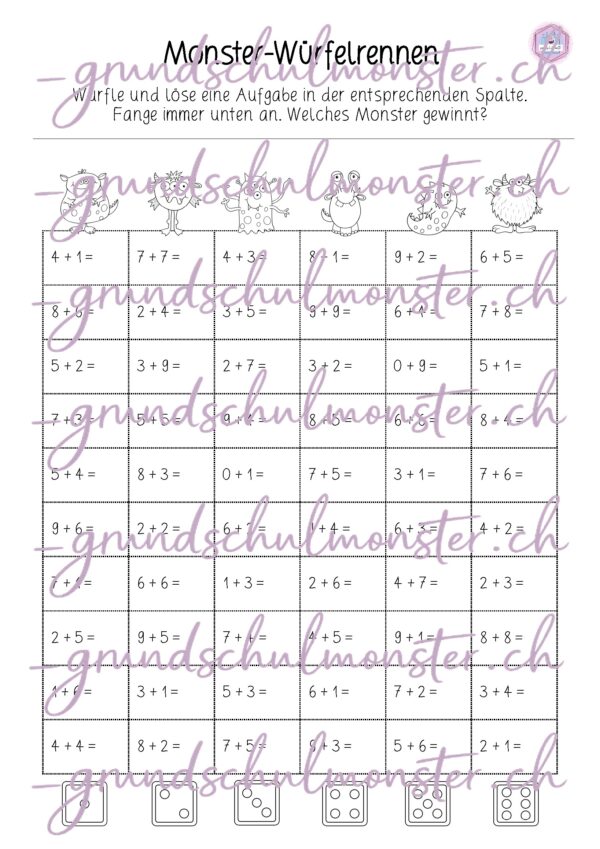 Monster-Würfelrennen
Würfle und löse eine Aufgabe in der entsprechenden Spalte.
Fange immer unten an. Welches Monster gewinnt?
_grundschulmonster.ch
_grundschulmonster.ch
4 + 1 = 7 + 7 = 4 + 3 = 8 + 1 = 9 + 2 = 6 + 5 =
_grundschulmonster.ch
8 + 6 = 2 + 4 = 3 + 5 = 9 + 9 = 7 + 8 =
5 + 2 = 3 + 9 = 2 + 7 = 3 + 2 = 0 + 9 = 5 + 1 =
_grundschulmonster.ch
7 + 3 = 5 + 5 = 9 + 4 = 8 + 5 = 6 + 6 = 8 + 4 =
5 + 4 = 8 + 3 = 0 + 1 = 7 + 5 = 3 + 1 = 7 + 6 =
_grundschulmonster.ch
9 + 6 = 2 + 2 = 1 + 4 = 6 + 3 = 4 + 2 =
6 + 6 = 1 + 3 = 2 + 6 = 4 + 7 = 2 + 3 =
2 + 5 = 9 + 5 = 7 + 4 = 4 + 5 = 9 + 1 = 8 + 8 =
_grundschulmonster.ch
1 + 6 = 3 + 1 = 5 + 3 = 6 + 1 = 7 + 2 = 3 + 4 =
4 + 4 = 8 + 2 = 7 + 5 = 5 + 6 = 2 + 1 =
_grundschulmonster.ch